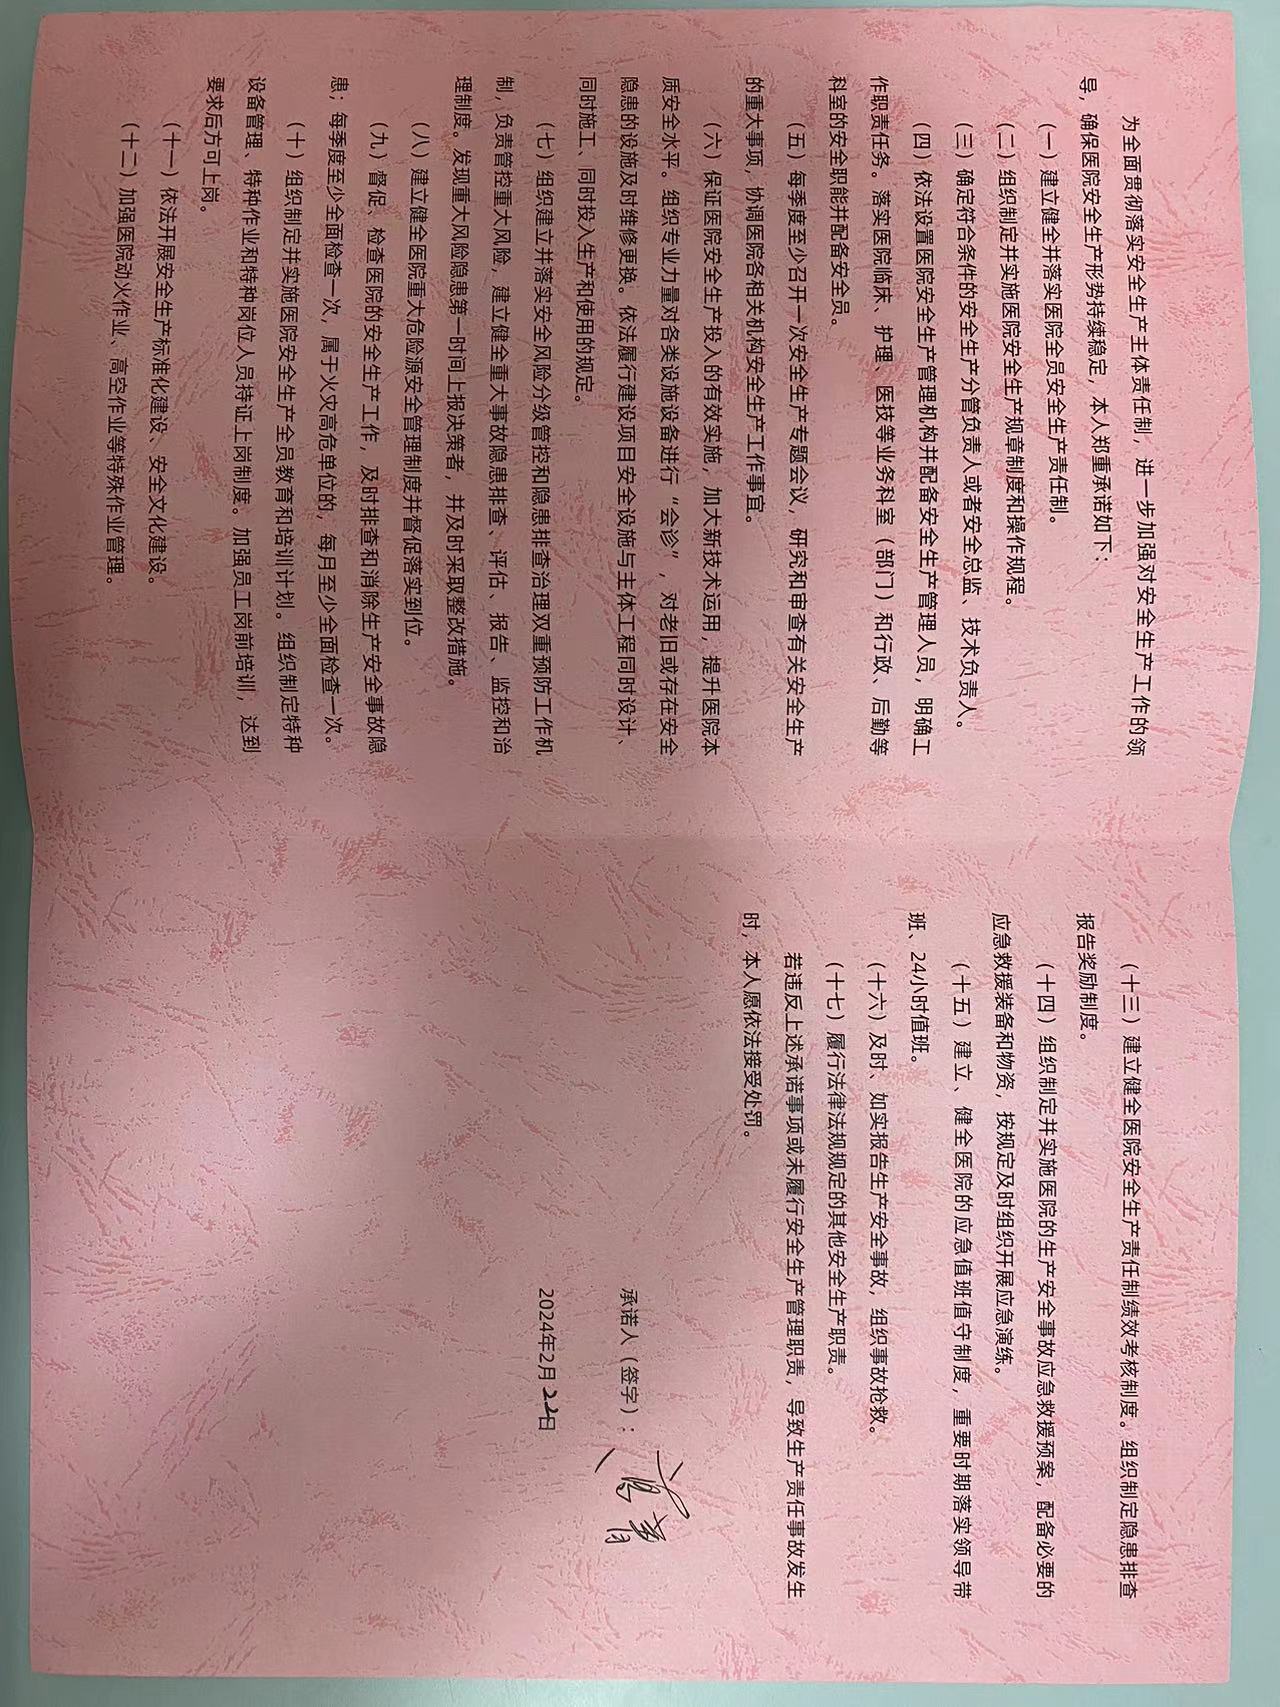 为全面贯彻落实安全生产主体责任制，进一步加强对安全生产工作的领
导，确保医院安全生产形势持续稳定，本人郑重承诺如下：
（一）建立健全并落实医院全员安全生产责任制。
（二）组织制定并实施医院安全生产规章制度和操作规程。
（三）确定符合条件的安全生产分管负责人或者安全总监、技术负责人。
（四）依法设置医院安全生产管理机构并配备安全生产管理人员，明确工
作职责任务。落实医院临床、护理、医技等业务科室（部门）和行政、后勤等
科室的安全职能并配备安全员。
（五）每季度至少召开一次安全生产专题会议，研究和审查有关安全生产
的重大事项，协调医院各相关机构安全生产工作事宜。
（六）保证医院安全生产投入的有效实施，加大新技术运用，提升医院本
质安全水平。组织专业力量对各类设施设备进行“会诊”，对老旧或存在安全
隐患的设施及时维修更换。依法履行建设项目安全设施与主体工程同时设计、
同时施工、同时投入生产和使用的规定。
（七）组织建立并落实安全风险分级管控和隐患排查治理双重预防工作机
制，负责管控重大风险，建立健全重大事故隐患排查、评估、报告、监控和治
理制度。发现重大风险隐患第一时间上报决策者，并及时采取整改措施。
（八）建立健全医院重大危险源安全管理制度并督促落实到位。
（九）督促、检查医院的安全生产工作，及时排查和消除生产安全事故隐
患；每季度至少全面检查一次，属于火灾高危单位的，每月至少全面检查一次。
（十）组织制定并实施医院安全生产全员教育和培训计划。组织制定特种
设备管理、特种作业和特种岗位人员持证上岗制度。加强员工岗前培训，达到
要求后方可上岗。
（十一）依法开展安全生产标准化建设、安全文化建设。
（十二）加强医院动火作业、高空作业等特殊作业管理。
（十三）建立健全医院安全生产责任制绩效考核制度。组织制定隐患排查
报告奖励制度。
（十四）组织制定并实施医院的生产安全事故应急救援预案，配备必要的
应急救援装备和物资，按规定及时组织开展应急演练。
（十五）建立、健全医院的应急值班值守制度，重要时期落实领导带
班、24小时值班。
（十六）及时、如实报告生产安全事故，组织事故抢救。
（十七）履行法律法规规定的其他安全生产职责。
若违反上述承诺事项或未履行安全生产管理职责，导致生产责任事故发生
时，本人愿依法接受处罚。
承诺人（签字）：
2024年2月22日